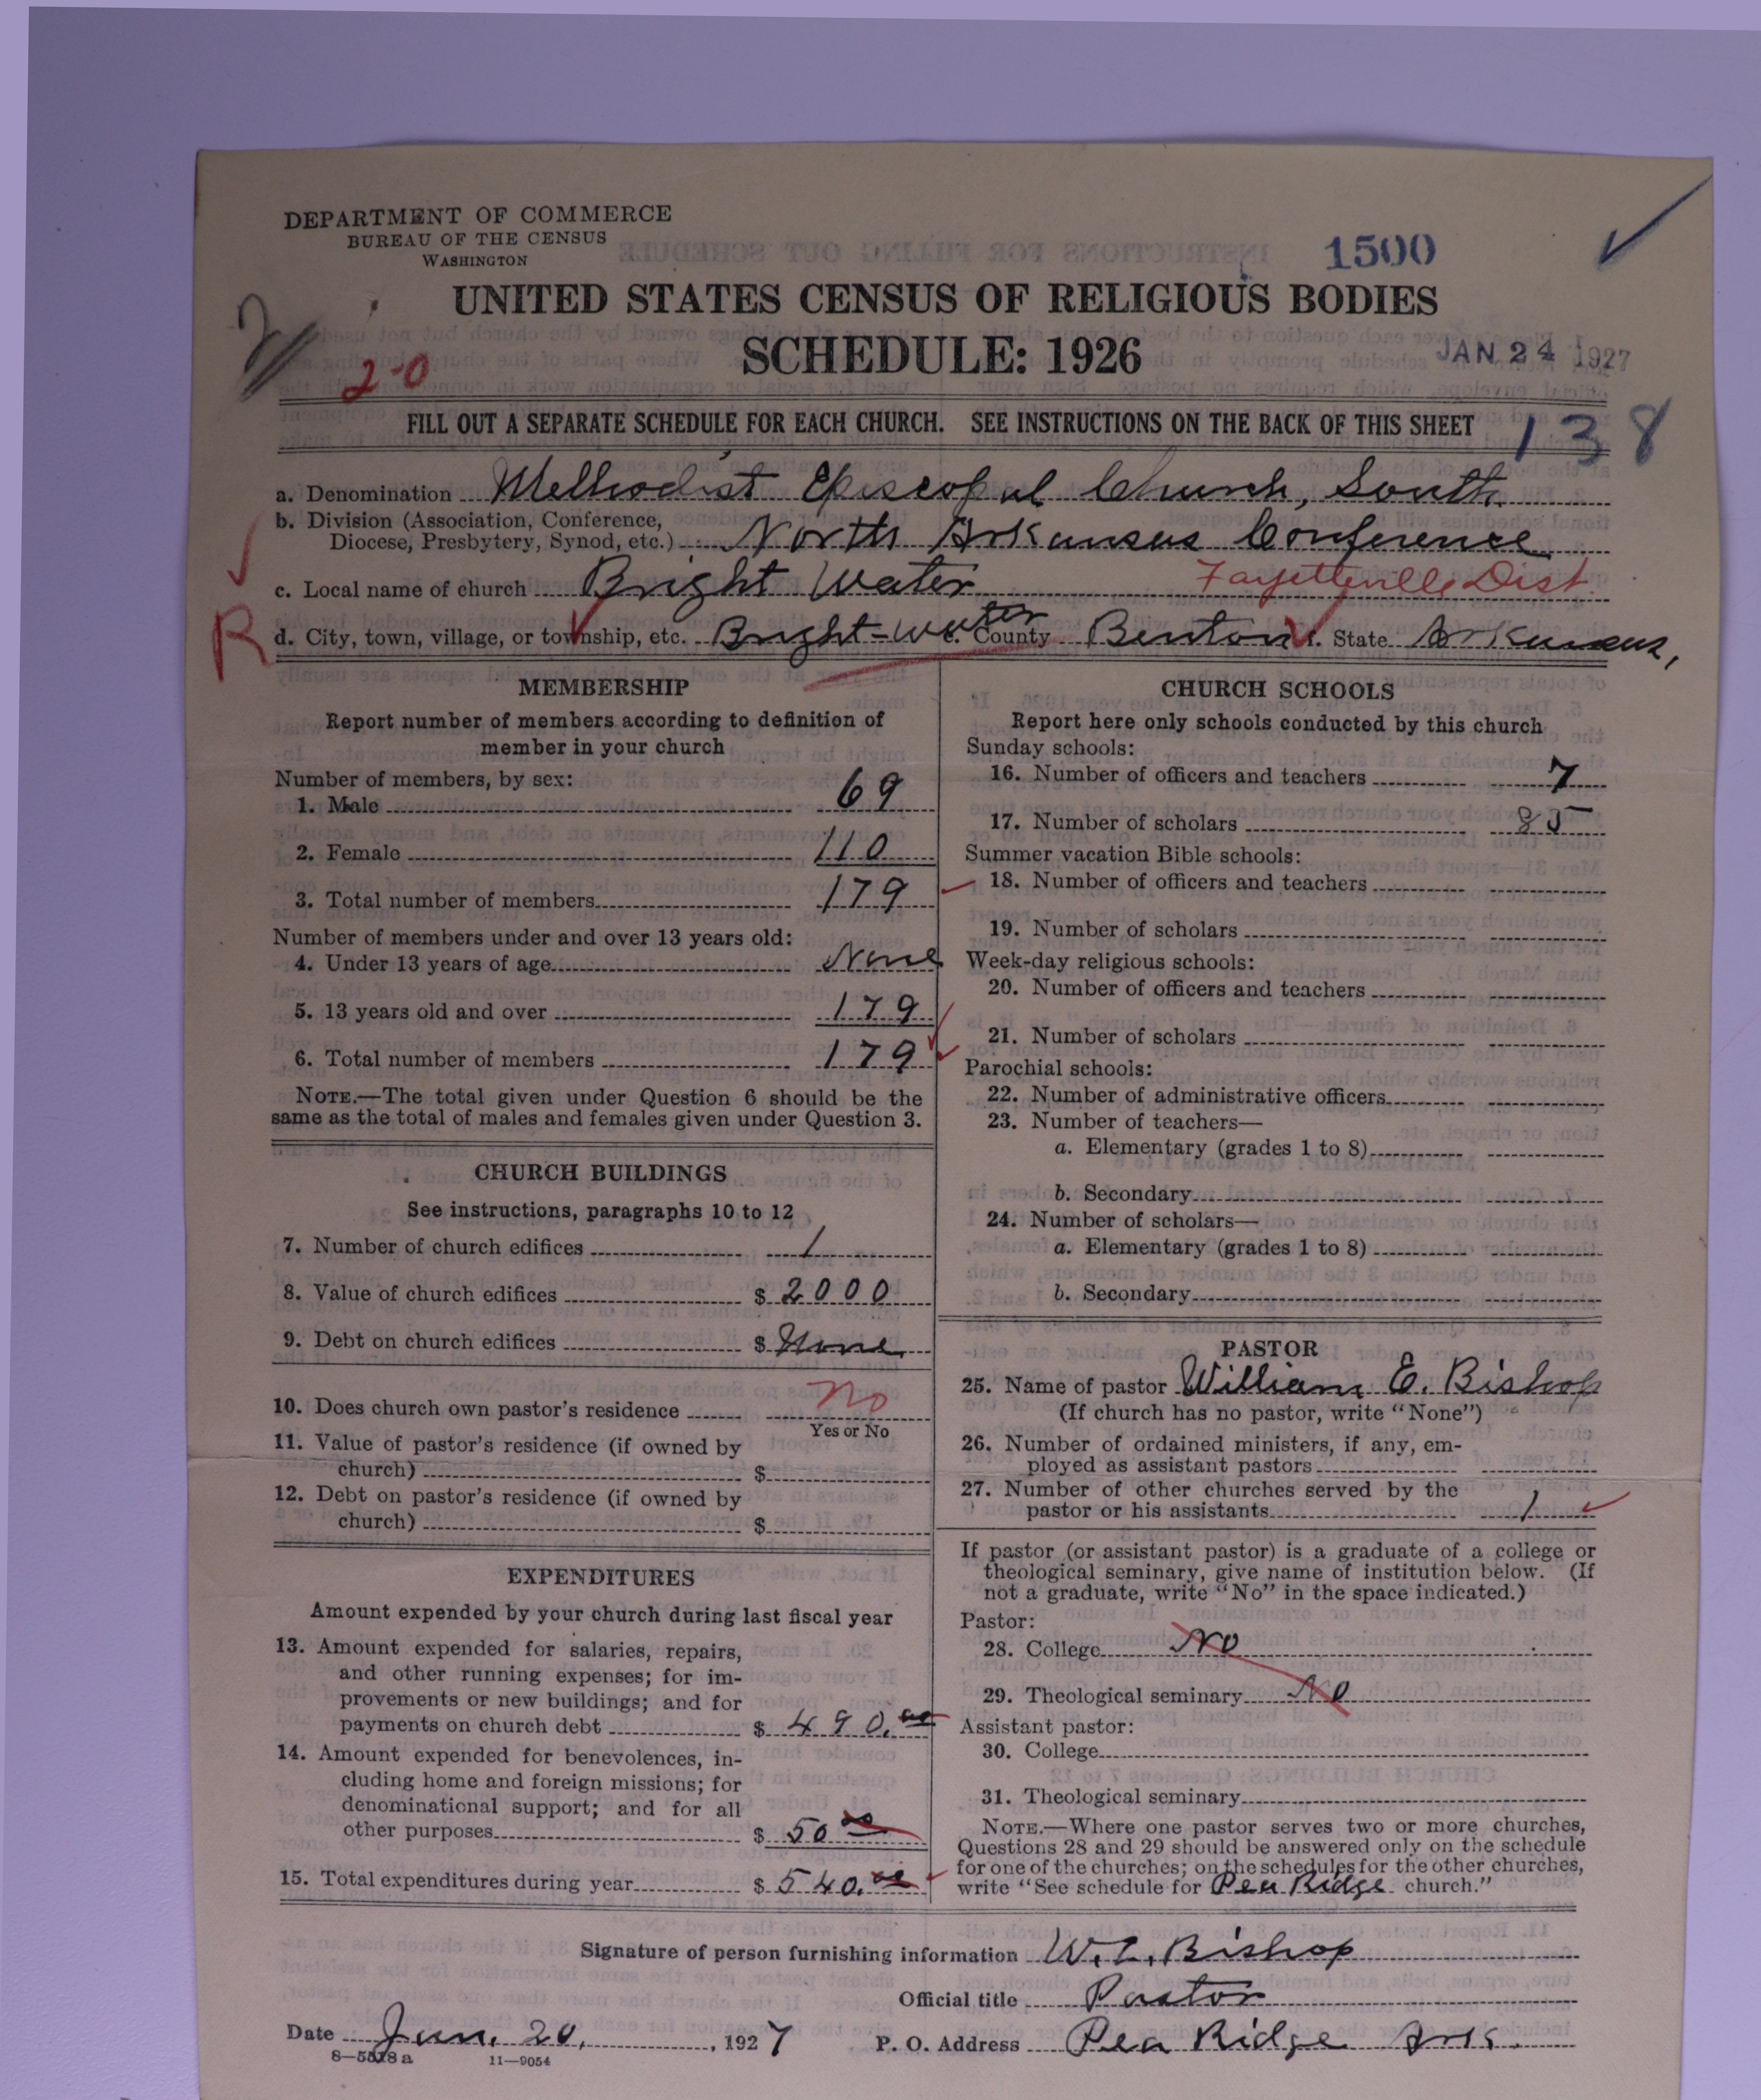 DEPARTMENT OF COMMERCE
BUREAU OF THE CENSUS
WASHINGTON
1500
UNITED STATES CENSUS OF RELIGIOUS BODIES
SCHEDULE: 1926
JAN 24 1927
20
FILL OUT A SEPARATE SCHEDULE FOR EACH CHURCH. SEE INSTRUCTIONS ON THE BACK OF THIS SHEET
138
a. Denomination Methodist Episcopal Church, South
b. Division (Association, Conference,
Diocese, Presbytery, Synod, etc.) North Arkansas Conference
c. Local name of church Bright Water Fayetteville Dist.
R
d. City, town, village, or township, etc. Bright-water e. County Benton f. State Arkansas,
MEMBERSHIP
Report number of members according to definition of
member in your church
Number of members, by sex:
1. Male 69
2. Female 110
3. Total number of members 179
Number of members under and over 13 years old:
4. Under 13 years of age None
5. 13 years old and over 179
6. Total number of members 179
NOTE.—The total given under Question 6 should be the
same as the total of males and females given under Question 3.
CHURCH BUILDINGS
See instructions, paragraphs 10 to 12
7. Number of church edifices 1
8. Value of church edifices $ 2000
9. Debt on church edifices $ None
10. Does church own pastor's residence No
Yes or No
11. Value of pastor's residence (if owned by
church) $
12. Debt on pastor's residence (if owned by
church) $
EXPENDITURES
Amount expended by your church during last fiscal year
13. Amount expended for salaries, repairs,
and other running expenses; for im-
provements or new buildings; and for
payments on church debt $ 490.00
14. Amount expended for benevolences, in-
cluding home and foreign missions; for
denominational support; and for all
other purposes $ 50 00
15. Total expenditures during year $ 540.00
CHURCH SCHOOLS
Report here only schools conducted by this church
Sunday schools:
16. Number of officers and teachers 7
17. Number of scholars 85
Summer vacation Bible schools:
18. Number of officers and teachers
19. Number of scholars
Week-day religious schools:
20. Number of officers and teachers
21. Number of scholars
Parochial schools:
22. Number of administrative officers
23. Number of teachers—
a. Elementary (grades 1 to 8)
b. Secondary
24. Number of scholars—
a. Elementary (grades 1 to 8)
b. Secondary
PASTOR
25. Name of pastor William E. Bishop
(If church has no pastor, write "None")
26. Number of ordained ministers, if any, em-
ployed as assistant pastors
27. Number of other churches served by the
pastor or his assistants 1
If pastor (or assistant pastor) is a graduate of a college or
theological seminary, give name of institution below. (If
not a graduate, write "No" in the space indicated.)
Pastor:
28. College No
29. Theological seminary No
Assistant pastor:
30. College
31. Theological seminary
NOTE.—Where one pastor serves two or more churches,
Questions 28 and 29 should be answered only on the schedule
for one of the churches; on the schedules for the other churches,
write "See schedule for Pea Ridge church."
Signature of person furnishing information W. E. Bishop
Official title Pastor
Date Jan. 20, 1927 P. O. Address Pea Ridge Ark.
8—5518a 11—9054